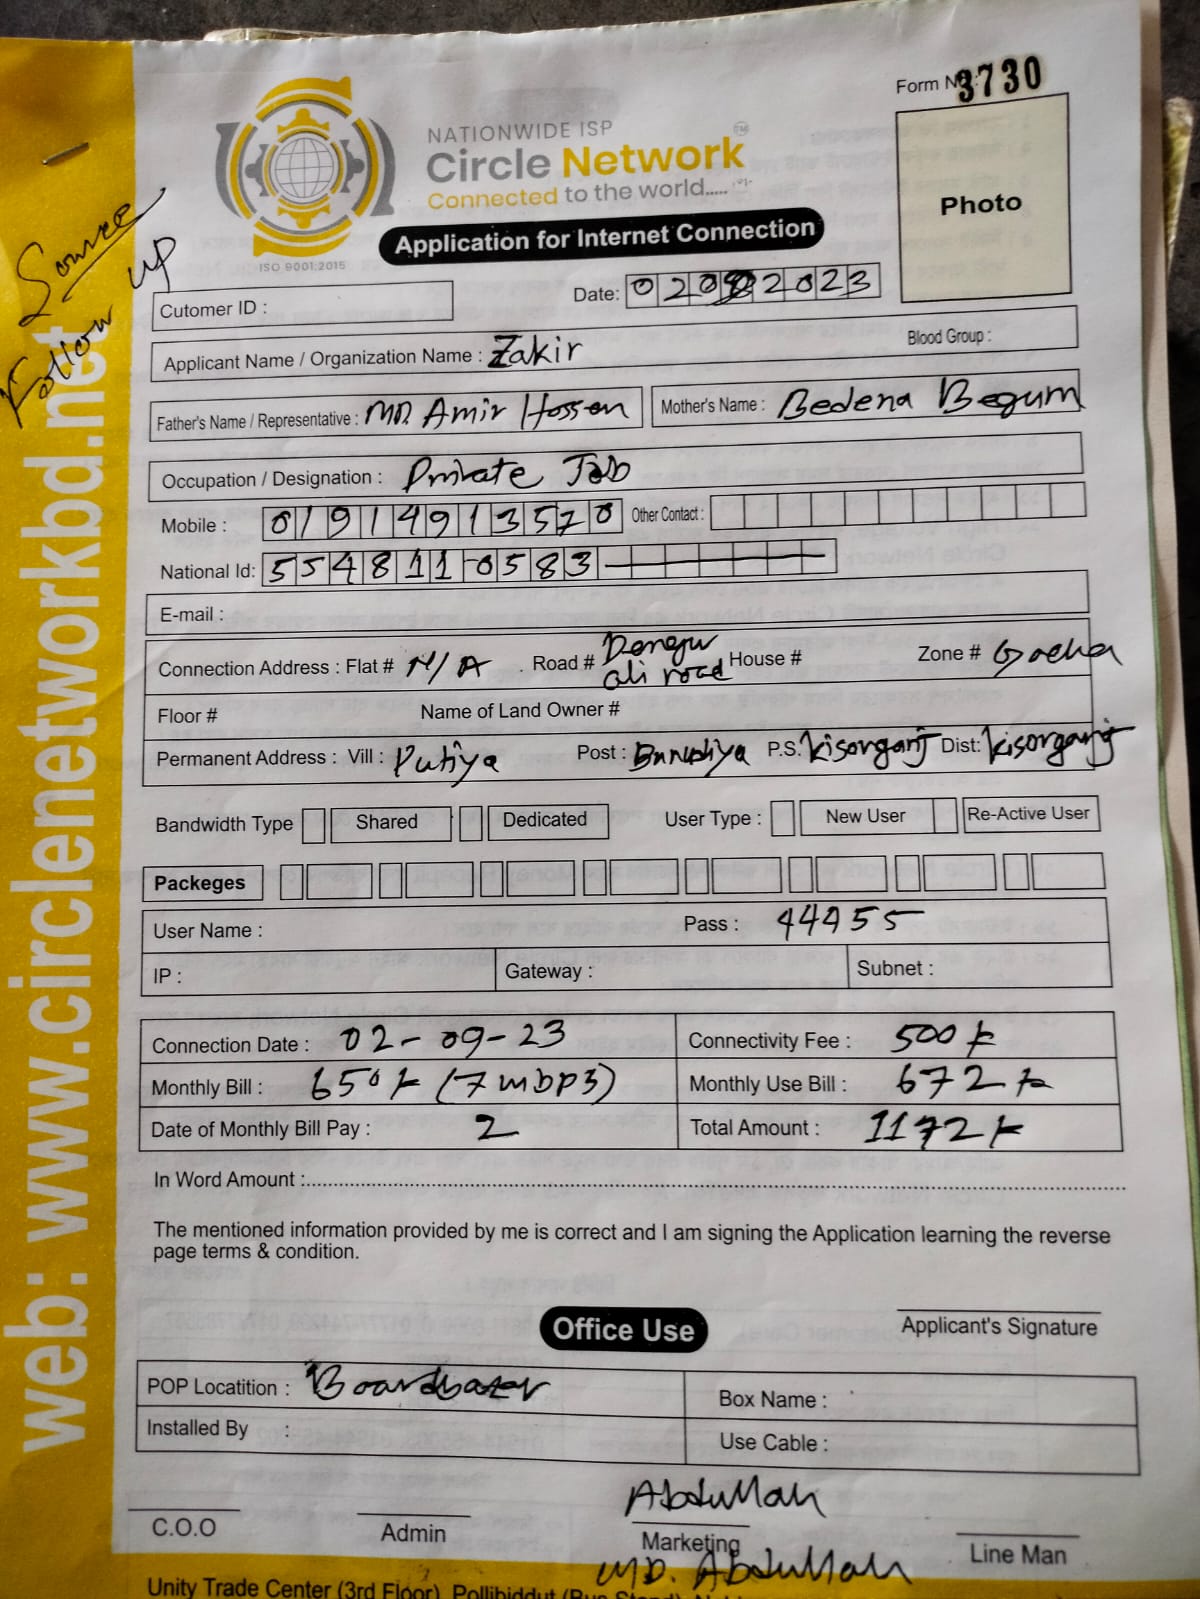 Form No: 3730
NATIONWIDE ISP
Circle Network™
Connected to the world.....
ISO 9001:2015
Application for Internet Connection
Photo
Source
Follow up
Cutomer ID :
Date: 02 2023
Applicant Name / Organization Name : Zakir Blood Group :
Father's Name / Representative : MD. Amir Hossen Mother's Name : Bedena Begum
Occupation / Designation : Private Job
Mobile : 01914913570 Other Contact :
National Id: 5548110583
E-mail :
Connection Address : Flat # N/A . Road # ali road House # Zone # Gacha
Floor # Name of Land Owner #
Permanent Address : Vill : Putiya Post : P.S. kisorganj Dist: kisorganj
Bandwidth Type Shared Dedicated User Type : New User Re-Active User
Packeges
User Name : Pass : 44455
IP : Gateway : Subnet :
Connection Date : 02-09-23 Connectivity Fee : 500 tk
Monthly Bill : 650 tk (7 mbps) Monthly Use Bill : 672 tk
Date of Monthly Bill Pay : 2 Total Amount : 1172 tk
In Word Amount :
The mentioned information provided by me is correct and I am signing the Application learning the reverse
page terms & condition.
Applicant's Signature
Office Use
POP Locatition : Boardbazar Box Name :
Installed By : Use Cable :
Abdullah
C.O.O Admin Marketing Line Man
MD. Abdullah
Unity Trade Center (3rd Floor), Pollibiddut (Bus Stand),
web: www.circlenetworkbd.net